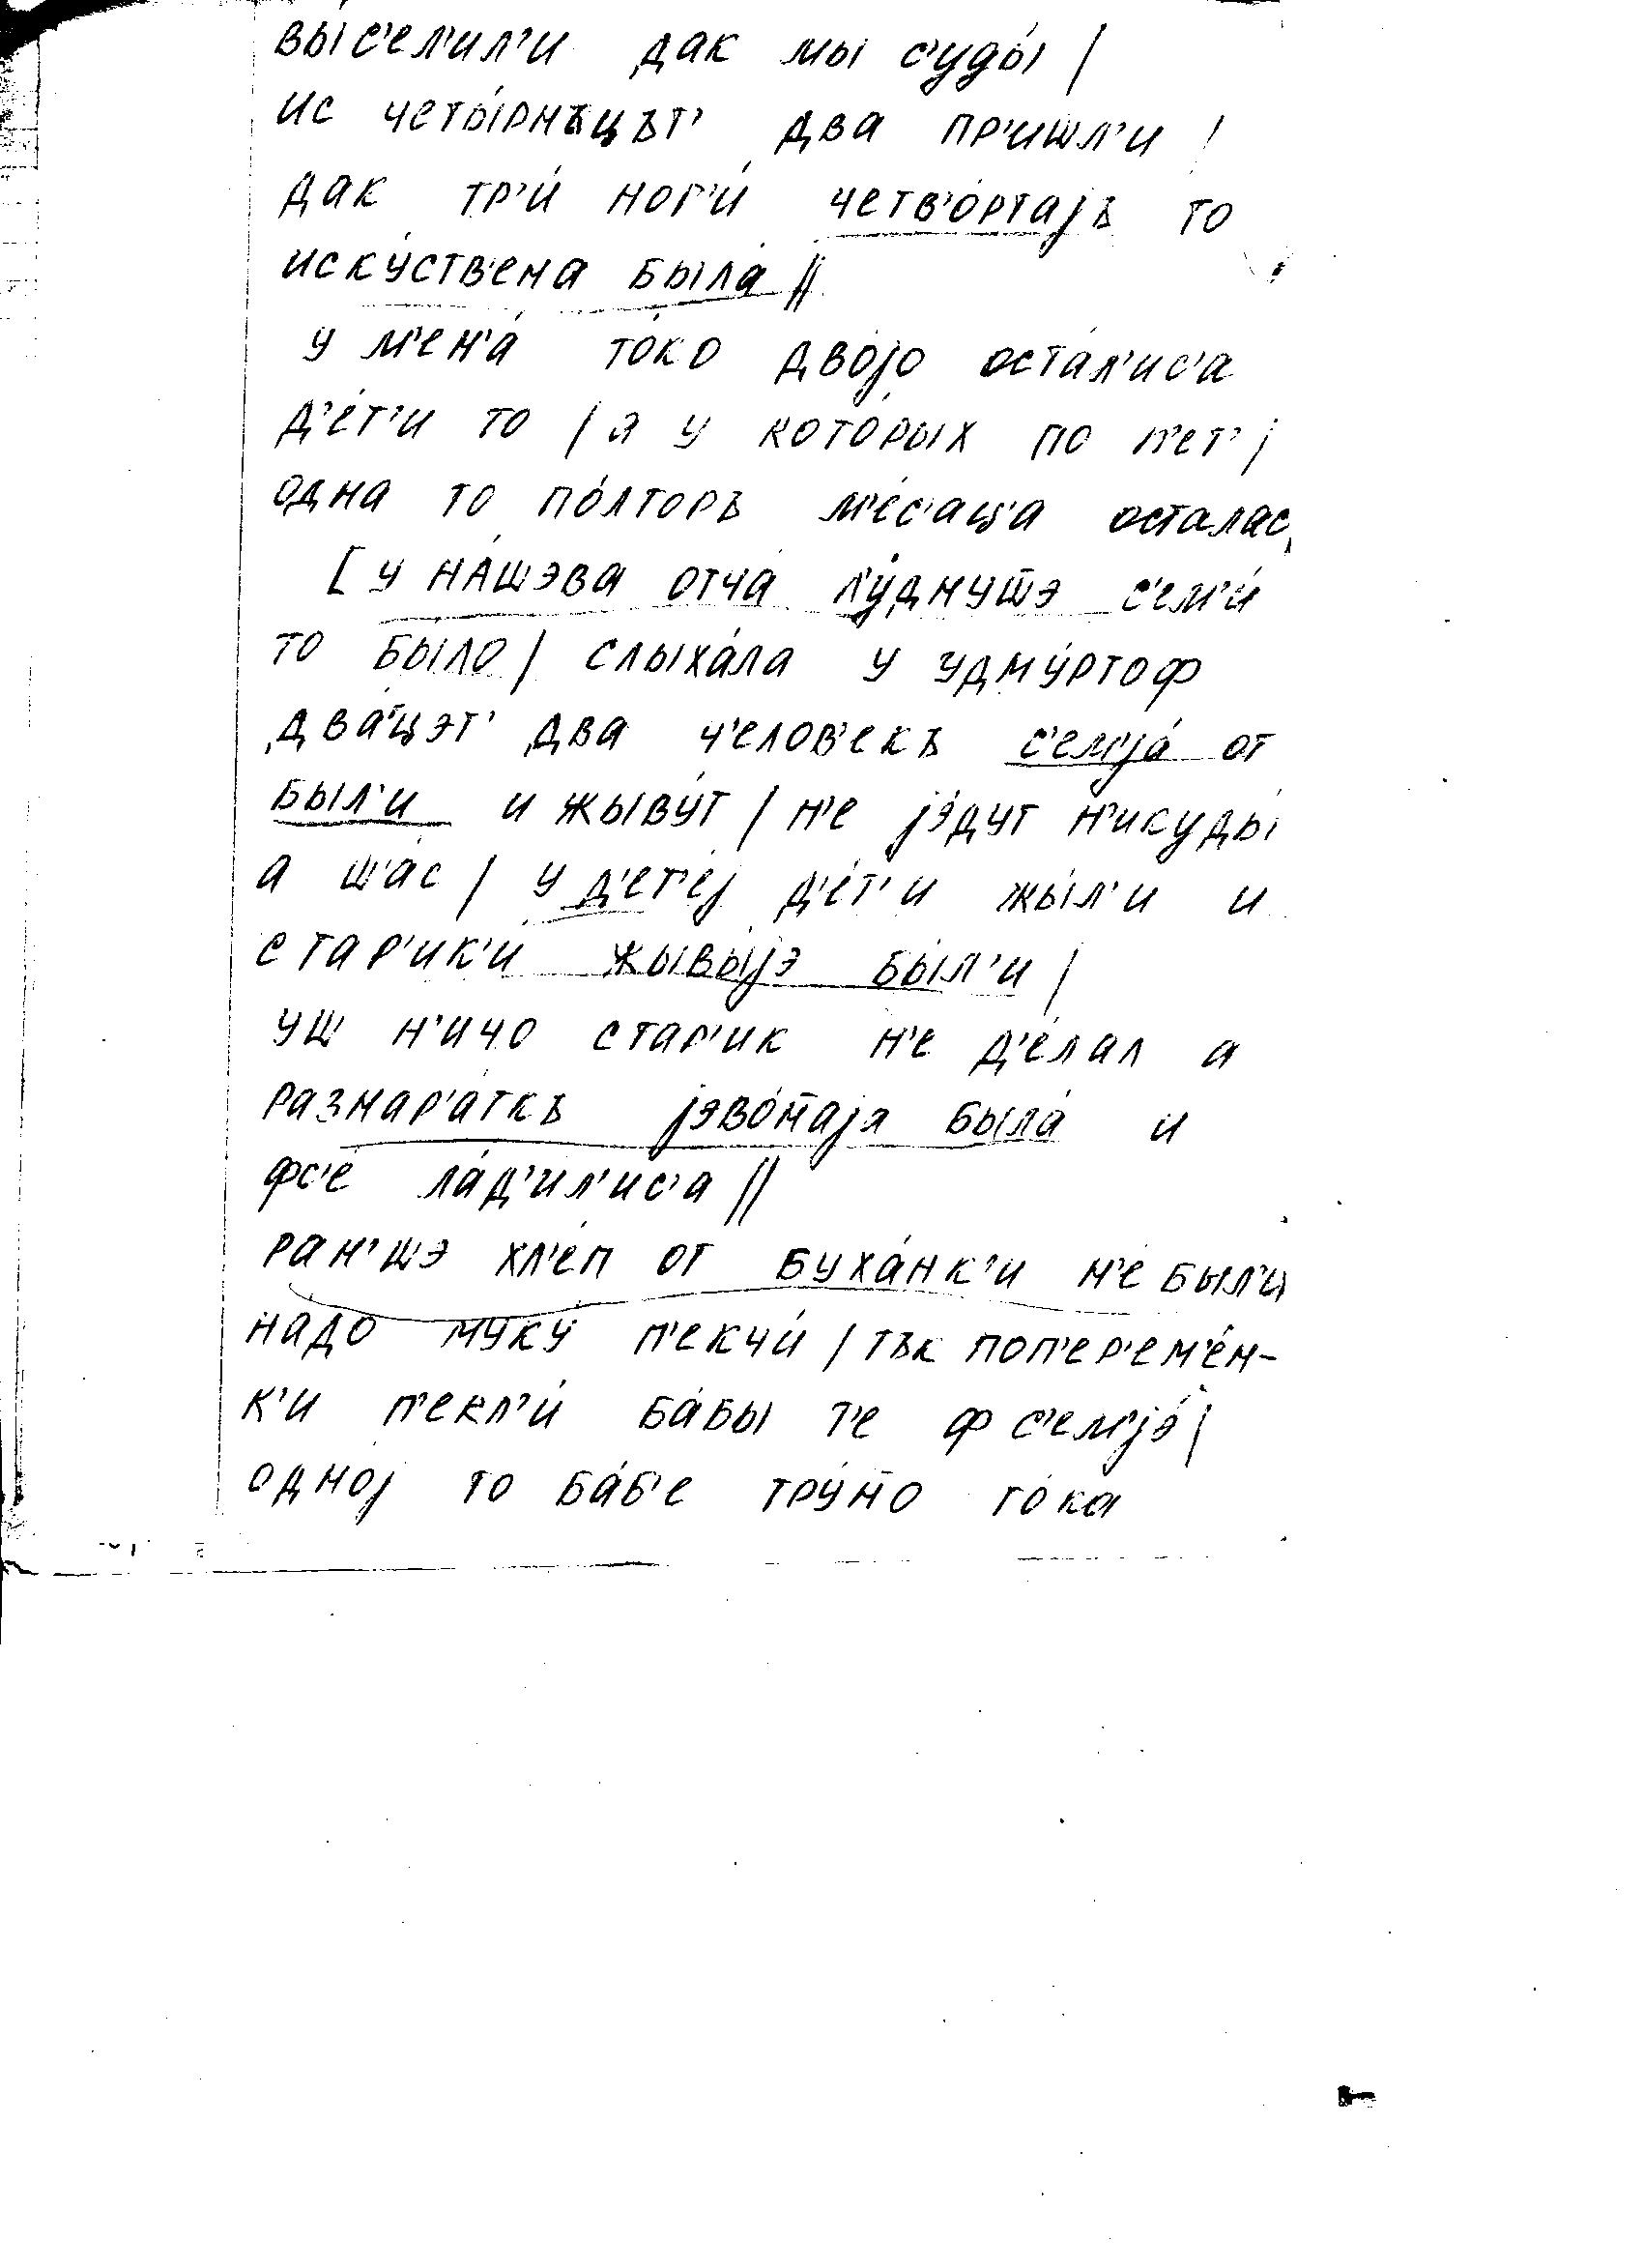 вы́с'ел'ил'и дак мы с'уды́ /
ис четы́рнъцът' два пр'ишл'и /
дак тр'и́ ног'и́ четв'о́ртајъ то
иску́ств'ена была́ //
у м'ен'а́ то́ко дво́јо оста́л'ис'а
д'е́т'и то / а у кото́рых по п'ет' /
одна то по́лторъ м'е́с'ац'а осталас,
[ у на́шэва отча́ л'у́днӯшэ с'ем'и́
то было / слыха́ла у удму́ртоф
два́цэт' два ч'елов'екъ с'ем'ја́ от
был'и и жыву́т / н'е је́дут н'икуды́
а ш'ас / у д'ет'е́ј д'е́т'и жы́л'и и
стар'ик'и́ жывы́јэ бы́л'и /
уш н'ичо стар'ик н'е д'е́лал а
разнар'а́ткъ јэво́н̄аја была́ и
фс'е ла́д'ил'ис'а //
ран'шэ хл'е́п от буха́нк'и н'е́ был'и
надо муку́ п'екчи́ / тък поп'ер'ем'е́н-
к'и п'екл'и́ ба́бы т'е ф с'ем'јэ́ /
одној то ба́б'е тру́н̄о то́ка